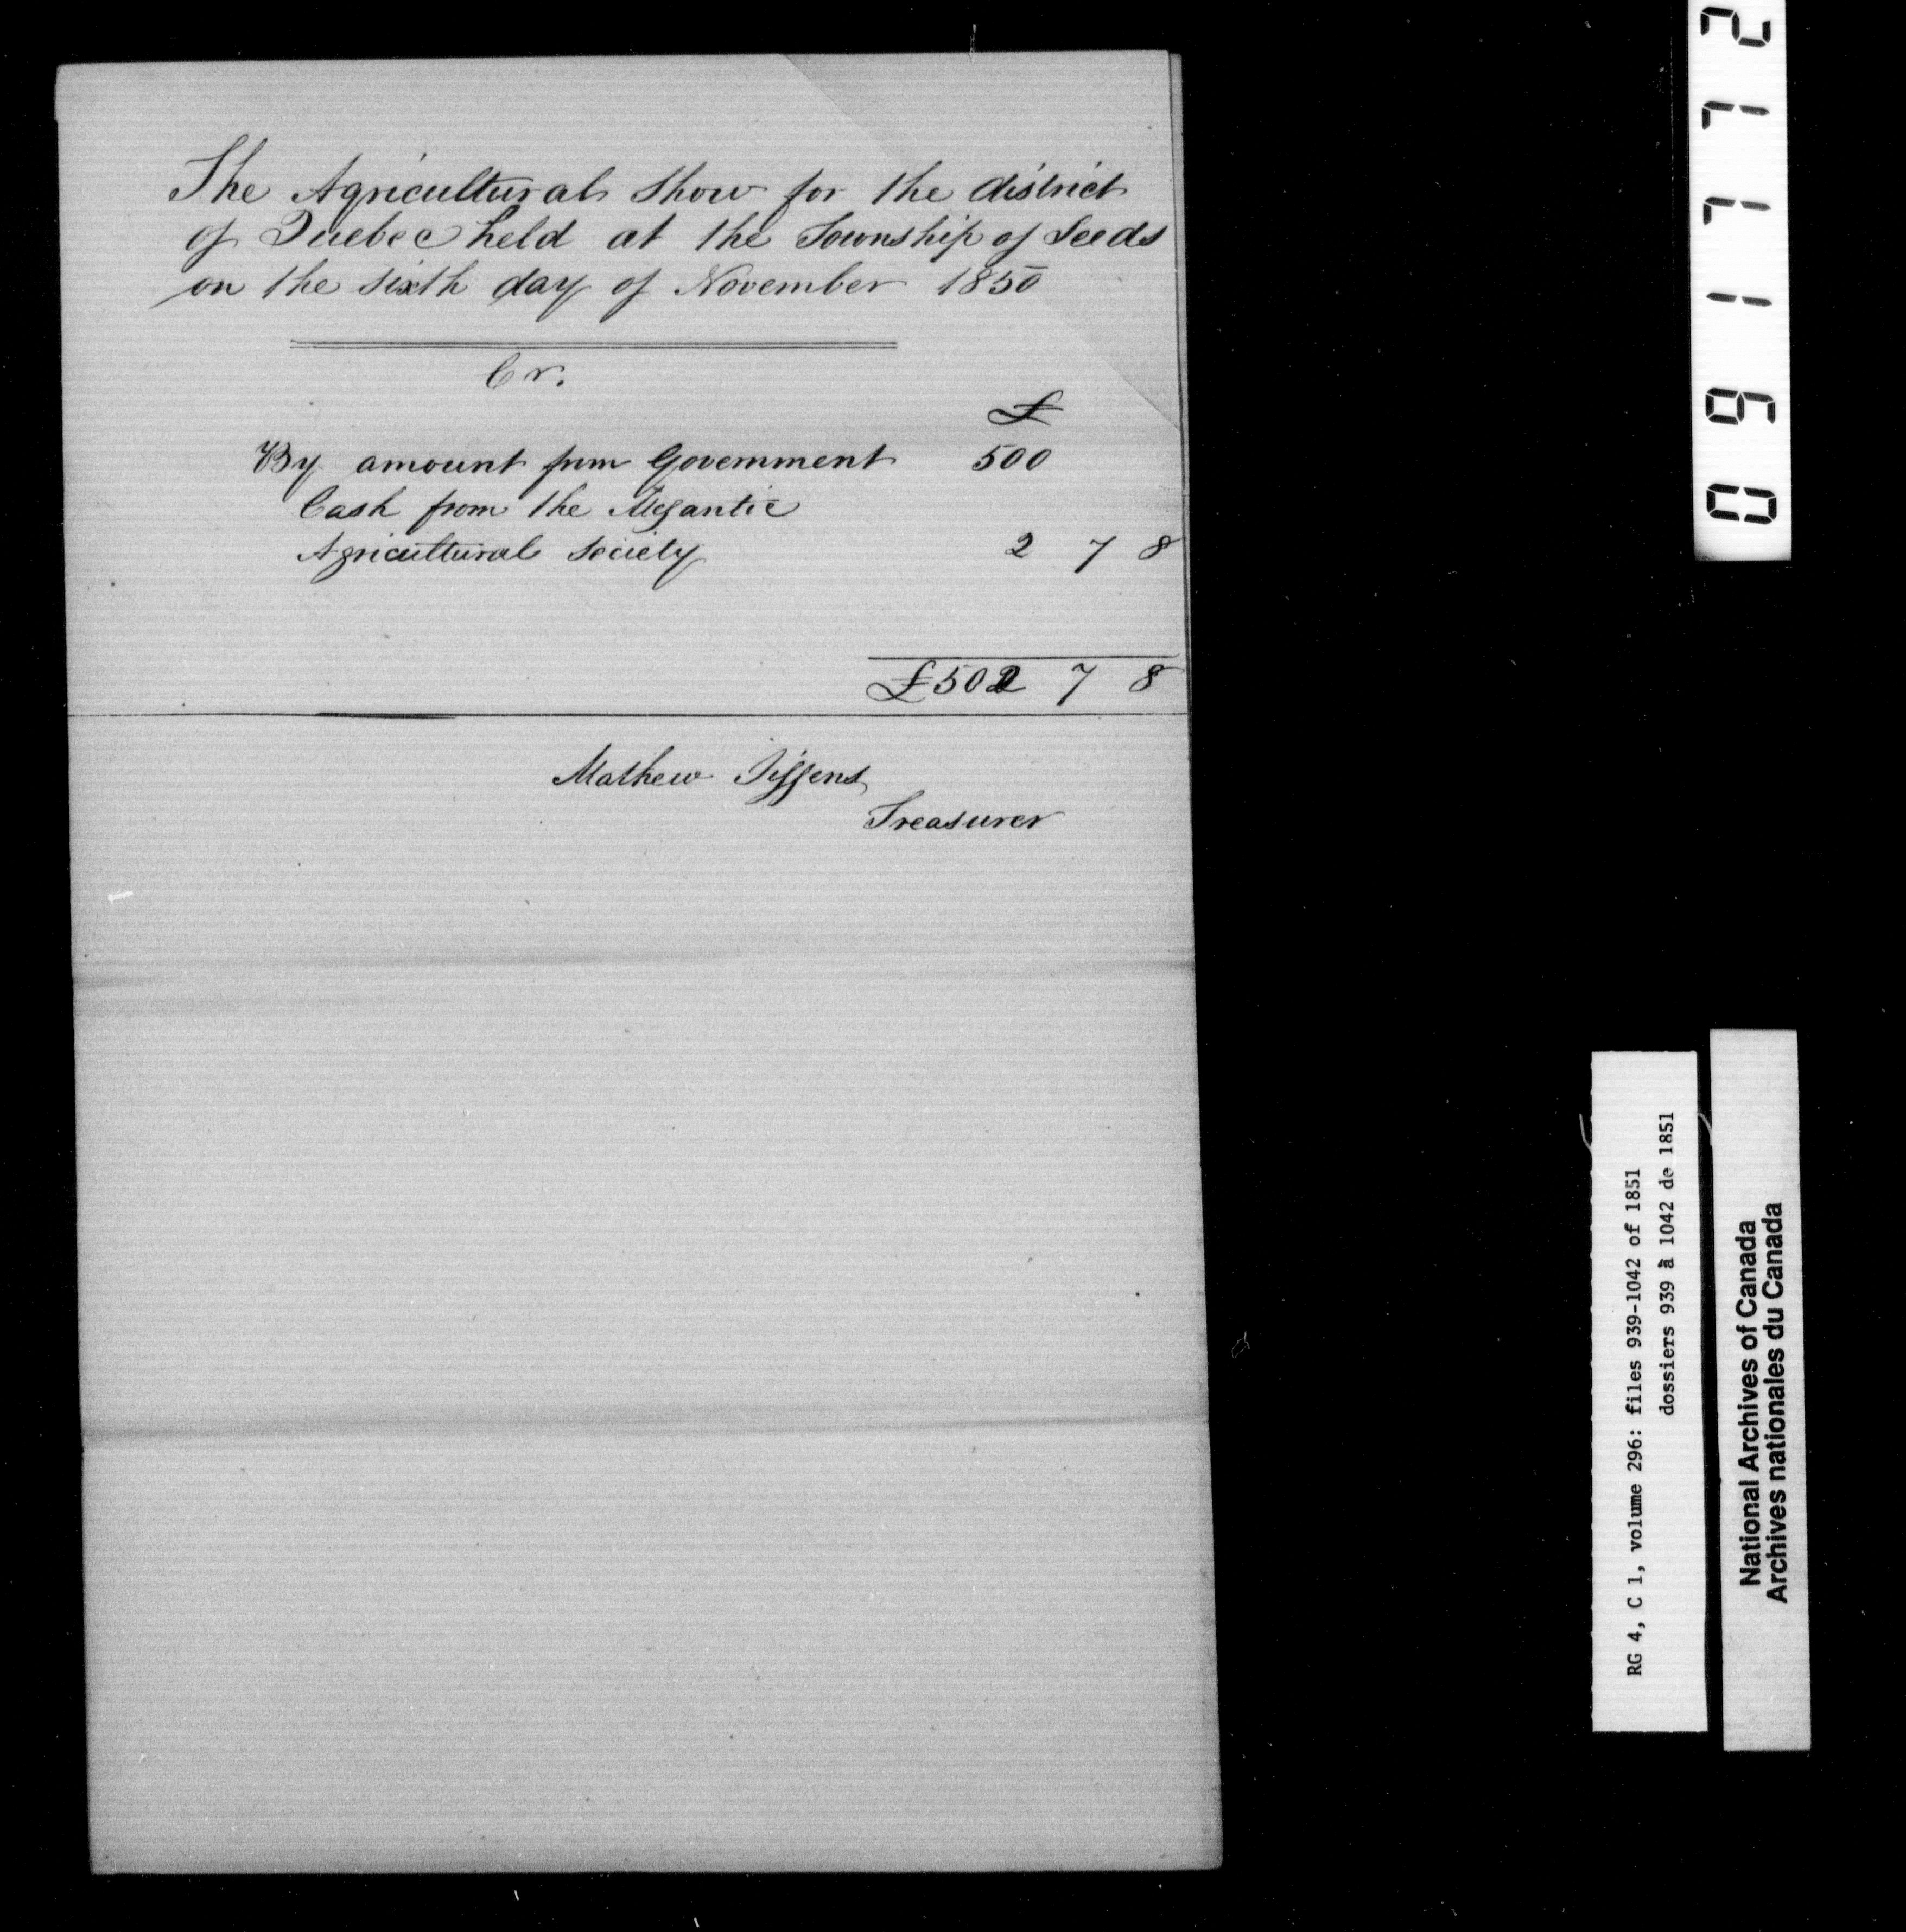 The Agricultural Show for the district
of Quebec held at the Township of Leeds
on the sixth day of November 1850
Cr.
£
By amount from Government 500
Cash from the Megantic
Agricultural Society 2 7 8
£502 7 8
Mathew
Treasurer
091172
RG 4, C 1, volume 296: files 939-1042 of 1851
dossiers 939 à 1042 de 1851
National Archives of Canada
Archives nationales du Canada